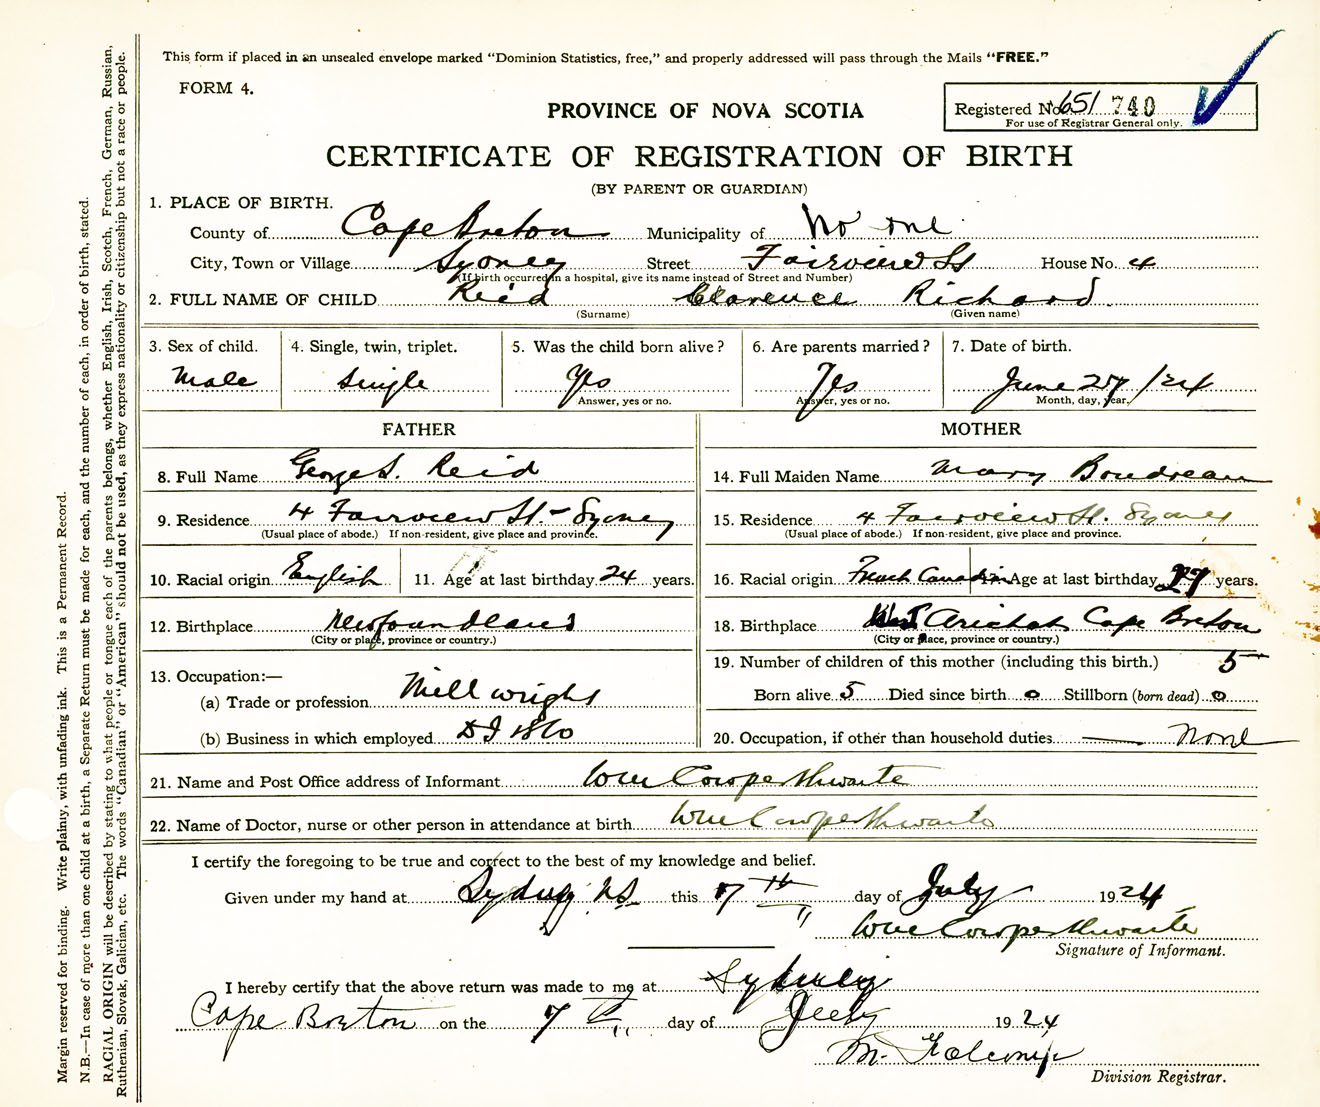 This form if placed in an unsealed envelope marked "Dominion Statistics, free," and properly addressed will pass through the Mails "FREE."
FORM 4.
PROVINCE OF NOVA SCOTIA
Registered No. 651 740
For use of Registrar General only.
CERTIFICATE OF REGISTRATION OF BIRTH
(BY PARENT OR GUARDIAN)
1. PLACE OF BIRTH.
County of Cape Breton Municipality of No one
City, Town or Village Sydney Street Fairview St House No. 4
(If birth occurred in a hospital, give its name instead of Street and Number)
2. FULL NAME OF CHILD Reid Clarence Richard.
(Surname) (Given name)
3. Sex of child. 4. Single, twin, triplet. 5. Was the child born alive? 6. Are parents married? 7. Date of birth.
Male Single Yes Yes June 27/24
Answer, yes or no. Answer, yes or no. Month, day, year.
FATHER
8. Full Name George S. Reid
9. Residence 4 Fairview St.- Sydney
(Usual place of abode.) If non-resident, give place and province.
10. Racial origin English 11. Age at last birthday 24 years.
12. Birthplace Newfoundland
(City or place, province or country.)
13. Occupation:—
(a) Trade or profession Mill wright
(b) Business in which employed D I S Co
MOTHER
14. Full Maiden Name Mary Boudreau
15. Residence 4 Fairview St. Sydney
(Usual place of abode.) If non-resident, give place and province.
16. Racial origin French Canadian Age at last birthday 27 years.
18. Birthplace West Arichat Cape Breton
(City or place, province or country.)
19. Number of children of this mother (including this birth.) 5
Born alive 5 Died since birth 0 Stillborn (born dead) 0
20. Occupation, if other than household duties None
21. Name and Post Office address of Informant Wm Cowperthwaite
22. Name of Doctor, nurse or other person in attendance at birth Wm Cowperthwaite
I certify the foregoing to be true and correct to the best of my knowledge and belief.
Given under my hand at Sydney NS this 7th day of July 1924
Wm Cowperthwaite
Signature of Informant.
I hereby certify that the above return was made to me at Sydney
Cape Breton on the 7th day of July 1924
Division Registrar.
Margin reserved for binding. Write plainly, with unfading ink. This is a Permanent Record.
N.B.—In case of more than one child at a birth, a Separate Return must be made for each, and the number of each, in order of birth, stated.
RACIAL ORIGIN will be described by stating to what people or tongue each of the parents belongs, whether English, Irish, Scotch, French, German, Russian,
Ruthenian, Slovak, Galician, etc. The words "Canadian" or "American" should not be used, as they express nationality or citizenship but not a race or people.